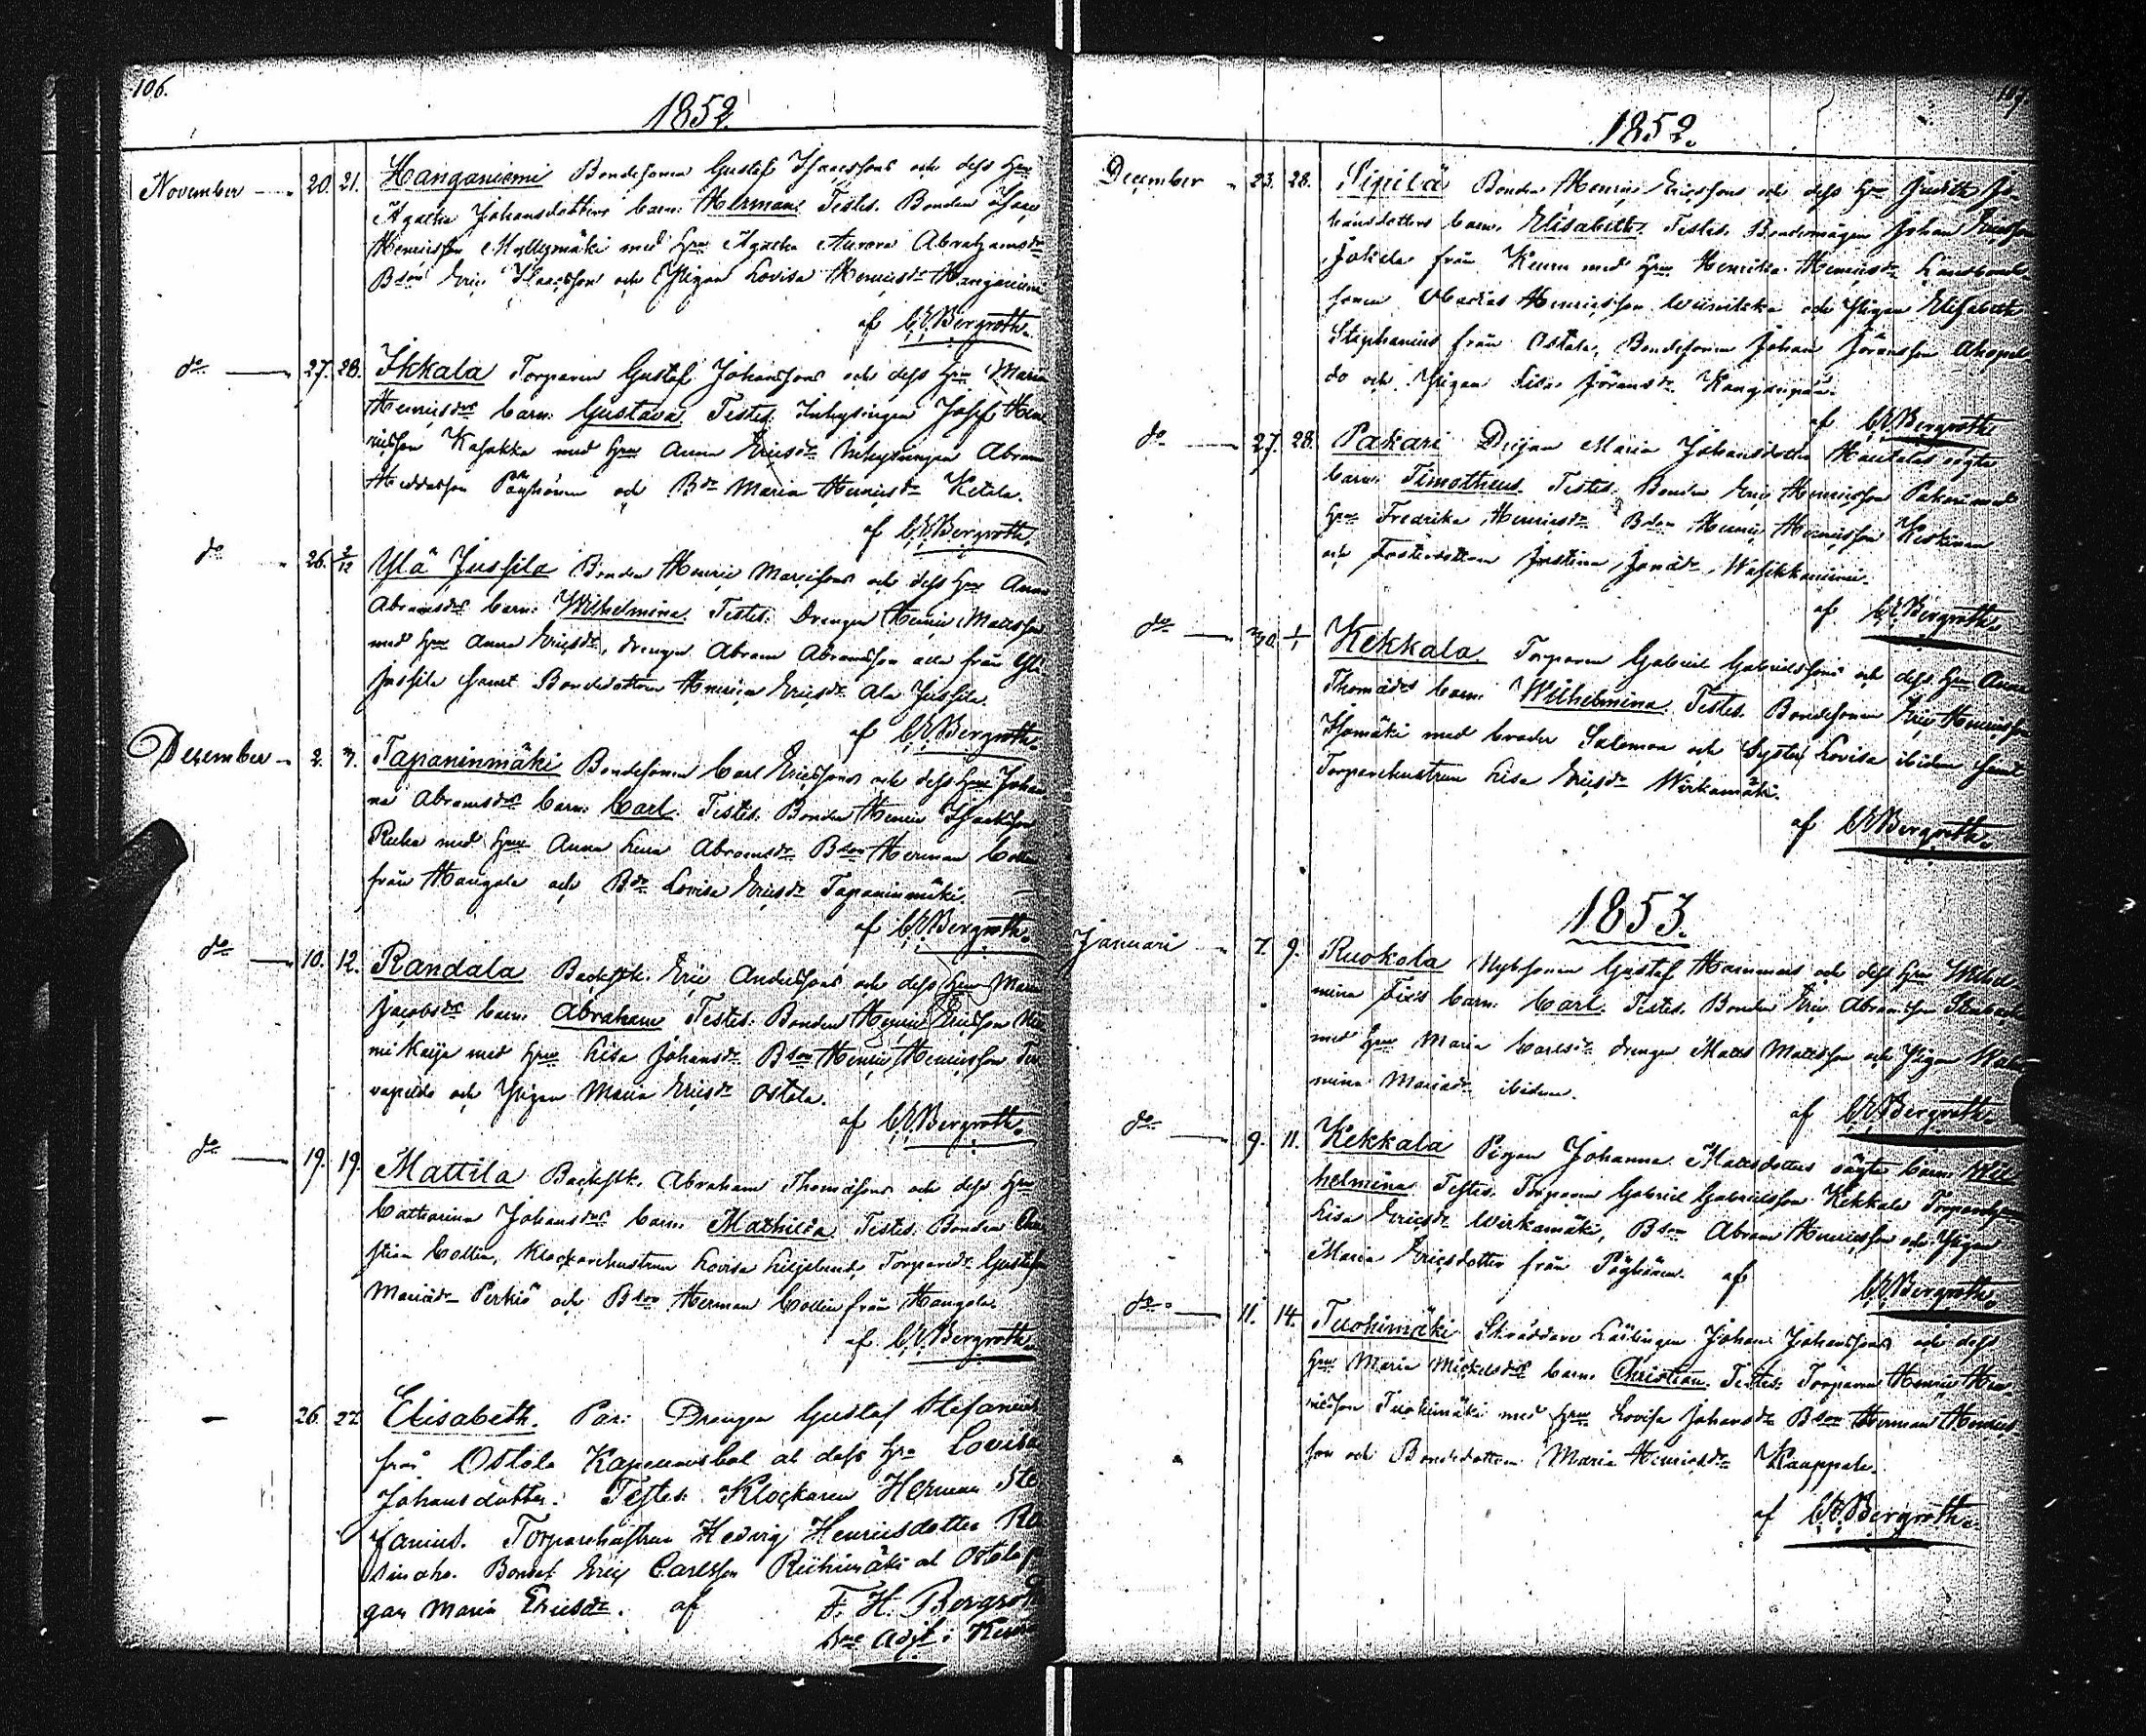 106.
1852.
November 20. 21. Hanganiemi Bondesonen Gustaf Isacssons och dess Hru
Agatha Johansdotters barn: Herman. Testes. Bonden Isac
Henricsson Myllymäki med Hru Agatha Aurora Abrahamsdr
Bson Eric Isacsson och Pigan Lovisa Henricsdr Hanganiemi
af C.E. Bergroth.
do 27. 28. Ikkala Torparen Gustaf Johanssons och dess Hru Maria
Henricsdrs barn: Gustava. Testes: Inhysingen Josef Hen-
ricsson Kasakka med Hru Anna Ericsdr Inhysingen Abram
Pöyhönen och Bdr Maria Henricsdr Ketola.
af C.E. Bergroth.
do 26. 2/12 Ylä Jussila Bonden Henric Marcissons och dess Hru Anna
Abramsdrs barn: Wilhelmina. Testes: Drengen Henric Matsson
med Hru Anna Ericsdr, drengen Abram Abramsson alla från Ylä
Jussila samt Bondedottren Henrica Ericsdr Ala Jussila.
af C.E. Bergroth.
December 2. 3. Tapaninmäki Bondesonen Carl Ericssons och dess Hru Johan-
na Abramsdrs barn: Carl. Testes. Bonden Henric Isacsson
med Hru Anna Lena Abramsdr Bson Herman Collin
från Haugola och Bdr Lovisa Ericsdr Tapaninmäki.
af C.E. Bergroth.
do 10. 12. Randala Backstk. Eric Anderssons och dess Hru Maria
Jacobsdrs barn: Abraham Testes: Bonden Henric Ericsson Nie-
mi Kaija med Hru Lisa Johansdr Bson Henric Henricsson
och Pigan Maria Ericsdr Ostola.
af C.E. Bergroth.
do 19. 19. Mattila Backstk. Abraham Thomassons och dess Hru
Catharina Johansdrs barn: Mathilda Testes: Bonden Chri-
stian Collin, Klockarehustrun Lovisa Liljelund, Torparedr Gustafva
Mariädr Perkiö och Bson Herman Collin från Haugola.
af C.E. Bergroth
26. 27. Elisabeth. Par: Drengen Gustaf Stefanius
från Ostola Kapellansbol at dess Hru Lovisa
Johansdotter. Testes: Klockaren Herman Ste-
fanius. Torparehustrun Hedvig Henricsdotter
Bondes. Eric Carlsson Riihimäki at Ostola pi-
gan Maria Ericsdr. af F. H. Bergroth
v. adj. i Keuru
107.
1852.
December 23. 28. Sipilä Bonden Henric Ericssons och dess Hru Judith Jo-
hansdotters barn. Elisabeth. Testes. Johan Ericsson
Jokela från Keuru med Hru Henrika Henricsdr
sonen Henricsson och Pigan Elisabeth
Stephanius från Ostola, Bondesonen Johan Göransson
och Pigan Lisa Göransdr Kangaspää.
af C.E. Bergroth
do 27. 28. Pakari Pigan Maria Johansdotter oägta
barn: Timotheus. Testes: Bonden Eric Henricsson Pakari med
Hru Fredrika Henricsdr Bson Henric Henricsson Keskinen
och Fosterdottren Justina Jonädr
af C.E. Bergroth.
do 30. 1/1 Kekkala. Torparen Gabriel Gabrielssons och dess Hru Anna
Thomädrs barn: Wilhelmina. Testes. Bondesonen Eric Henricsson
Isomäki med broder Salomon och Syster Lovisa ibidem samt
Torparehustrun Lisa Ericsdr Wirkamäki.
af C.E. Bergroth.
1853.
Januari 7. 9. Ruokola Gustaf Hammars och dess Hru Wilhel-
mina barn: Carl. Testes. Bonden Eric Abramsson
med Hru Maria Carlsdr drengen Matts Mattsson och Pigan Wilhel-
mina Mariädr ibidem.
af C.E. Bergroth.
do 9. 11. Kekkala Pigan Johanna Mattsdotters oägta barn: Wil-
helmina Testes. Torparen Gabriel Gabrielsson Kekkala Torparehru
Lisa Ericsdr Wirkamäki, Bson Abram Henricsson och Pigan
Maria Ericsdotter från Pöyhönen. af C.E. Bergroth.
do 11. 14. Tuohimäki Skräddare Lärlingen Johan Johanssons och dess
Hru Maria Mickelsdrs barn: Christian. Testes. Torparen Henric Hen-
ricsson Tuohimäki med Hru Lovisa Johansdr Bson Herman Henrics-
son och Bondedottren Maria Henricsdr Kauppala.
af C.E. Bergroth.